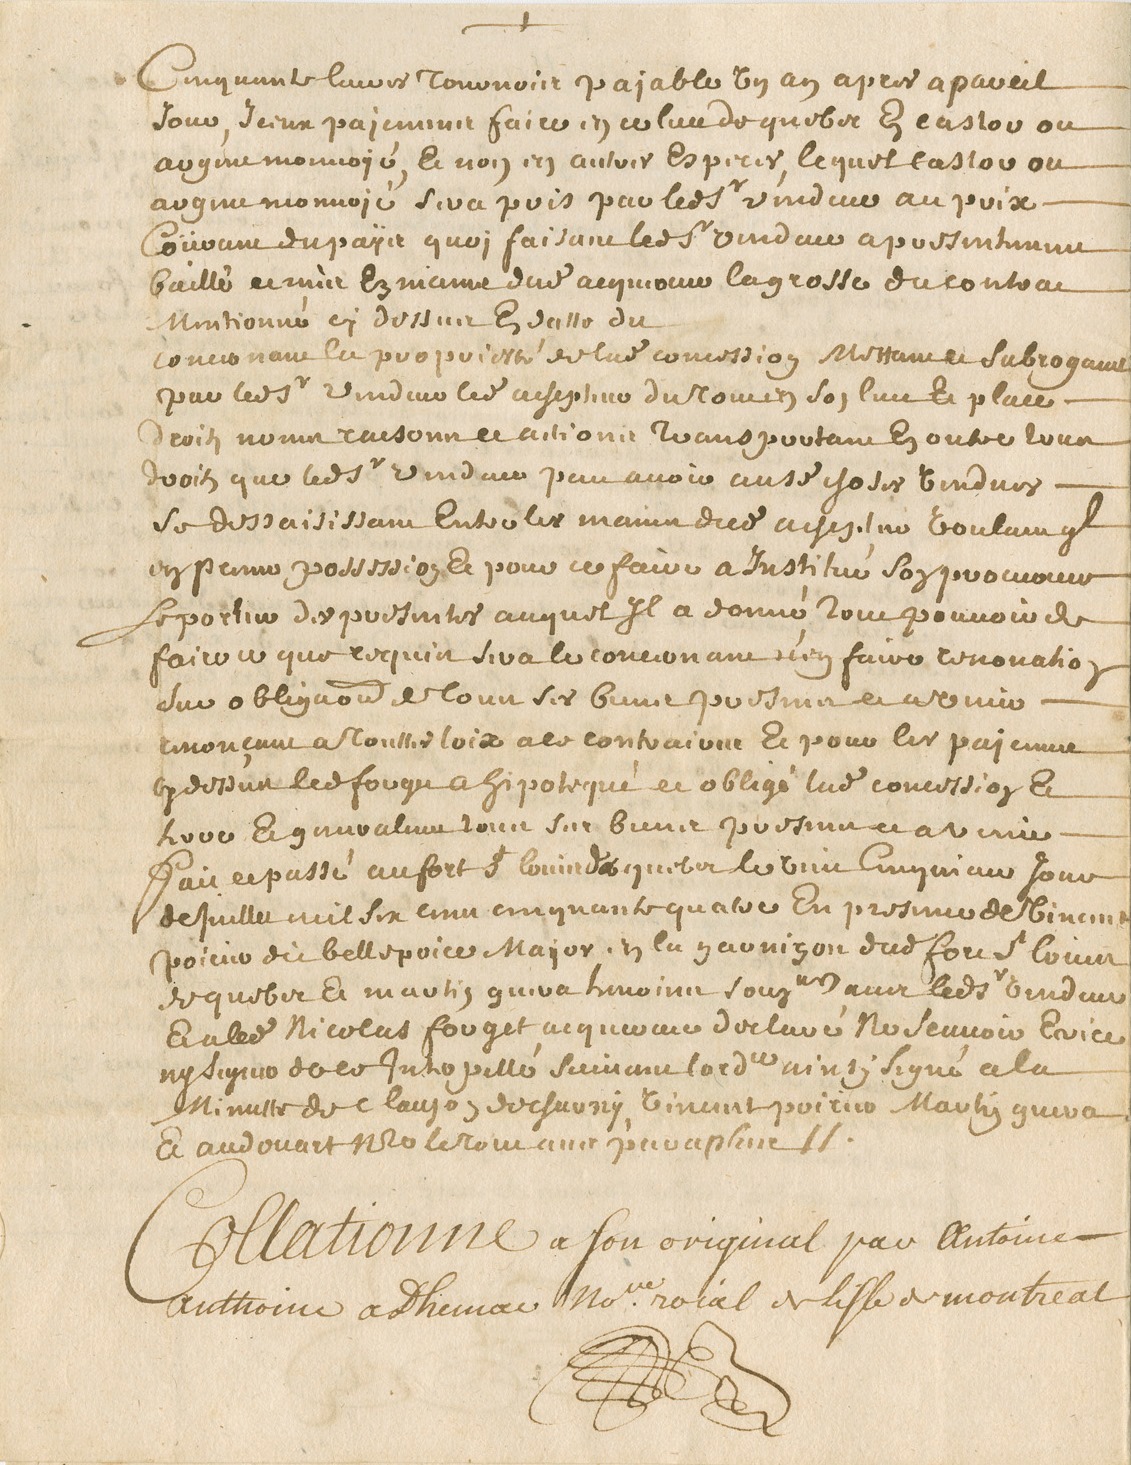 Cinquante livres Tournois payable Un an apres a pareil
Jour, Iceux paiemens faire en ce lieu de quebec En castor ou
argent monnoyé, Et non en autres Especes, lequel castor ou
argent monnoyé sera pris par led Sr vendeur au prix
Courant du païs quoi faisant led Sr vendeur a presentement
baillé et mis Ez mains dud acquereur la grosse du contrat
Mentionné cy dessus En datte du
concernant la proprietté de lad concession Mettant et subrogeant
par led Sr vendeur led achepteur du tout en son lieu Et place
droits noms raisons et actions Transportant En outre tous
droits que led Sr vendeur peut avoir ausd choses Vendues
Se dessaisissant Entre les mains dud achepteur Voulant ql
en prenne possession Et pour ce faire a Institué son procureur
Le porteur des presentes auquel Il a donné tout pouvoir de
faire ce que requis sera le concernant en faire renonation
sur obligaon de tous ses biens presens et avenir
renonçant a Touttes loix a ce contraires Et pour les paiemens
cy dessus led fouget a hipotequé et obligé lad concession Et
terre Et generalement tous ses biens presens et avenir
Fait et passé au fort St louis de quebec le vint Cinquieme Jour
de Juillet mil six cens cinquante quatre En presence de Vincent
poirier dit bellepoire Major en la garnizon dud fort St louis
de quebec Et martin gueva temoins souznes avec led Sr Vendeur
Et aled Nicolas fouget acquereur declaré Ne Scavoir Ecrire
ny Signer de ce Interpellé suivant lordce ainsy Signé a la
Minutte de C lauson de charny Vincent poirier Martin gueva
Et audouart Nre le tout avec paraphes //.
Collationné a son original par Antoine
Anthoine aDhemar Nore. roial de lisle de montreal